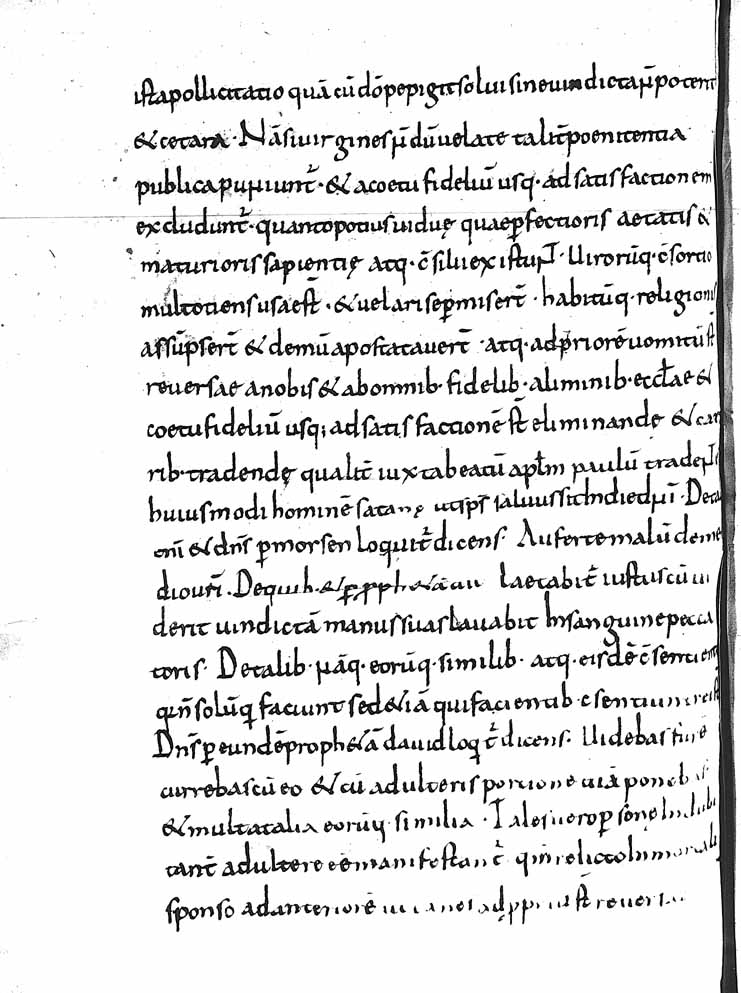 istapollicitatio quā cū dō pepigit solui sine uindicta n̄ poterit
& cetara · Nā si uirgines n̄dū uelate taliť poenitentia
publica puniunť · & a coetu fideliū usq· ad satisfactionem
excluduntť · quanto potius uiduę quae ꝑfectioris aetatis &
maturioris sapientię atq· c̄silii existunt · Uirorūq· c̄sortio
multotiens usae sť · & uelari se ꝑmiserť · habitūq· religionis
assūpserť & demū apostatauerť · atq· ad priorē uomitū sť
reuersae a nobis & ab omnib· fidelib· a liminib· eccłae &
coetu fideliū usq; ad satisfactionē sť eliminandę & car
rib· tradendę qualiť iuxta beatū apłm paulū tradent
huiusmodi hominē satanę ut sp̄s saluus sit in die dn̄i · De ta
& dn̄s ꝑ morsen loquitť dicens · Auferte malū de me
dio uri · De quib· & ꝑ proph&ā laetabiť iustus cū ui
derit uindictā manus suas lauabit In sanguine pecca
toris · De talib· nāq· eorūq· similib· atq· eisdē c̄sentient
qui n̄ solū faciunt sed &iā qui facientib· c̄sentiunt
Dn̄s ꝑ eundē proph&ā dauid loqť dicens · Uidebas furē
currebas cū eo & cū adulteris portionē tuā poneb
& multa talia eorūq· similia · Tales uero ꝑsonę
tanť adultere eē manifestanť q· relicto inmortali
sponso ad anteriorē reuer